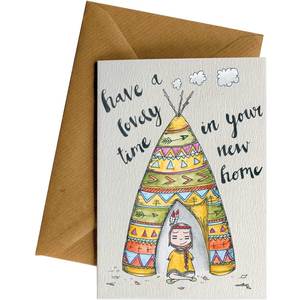 have a
lovely
time
in your
new
home